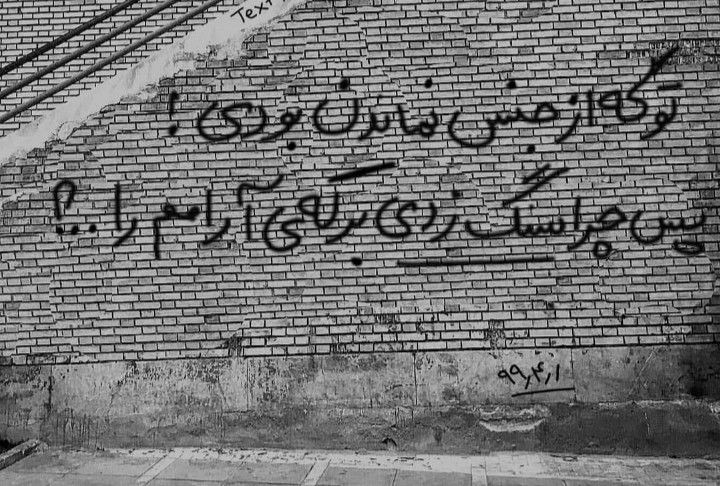 Text
تو که از جنس نماندن بودی!
پس چرا سنگ زدی برکه‌ی آرامم را..؟!
۹۹٫۴٫۱